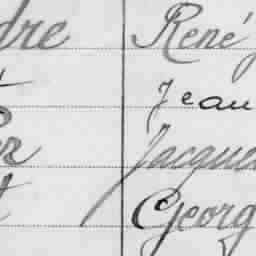 dre René
Jean
Jacque
t Georg